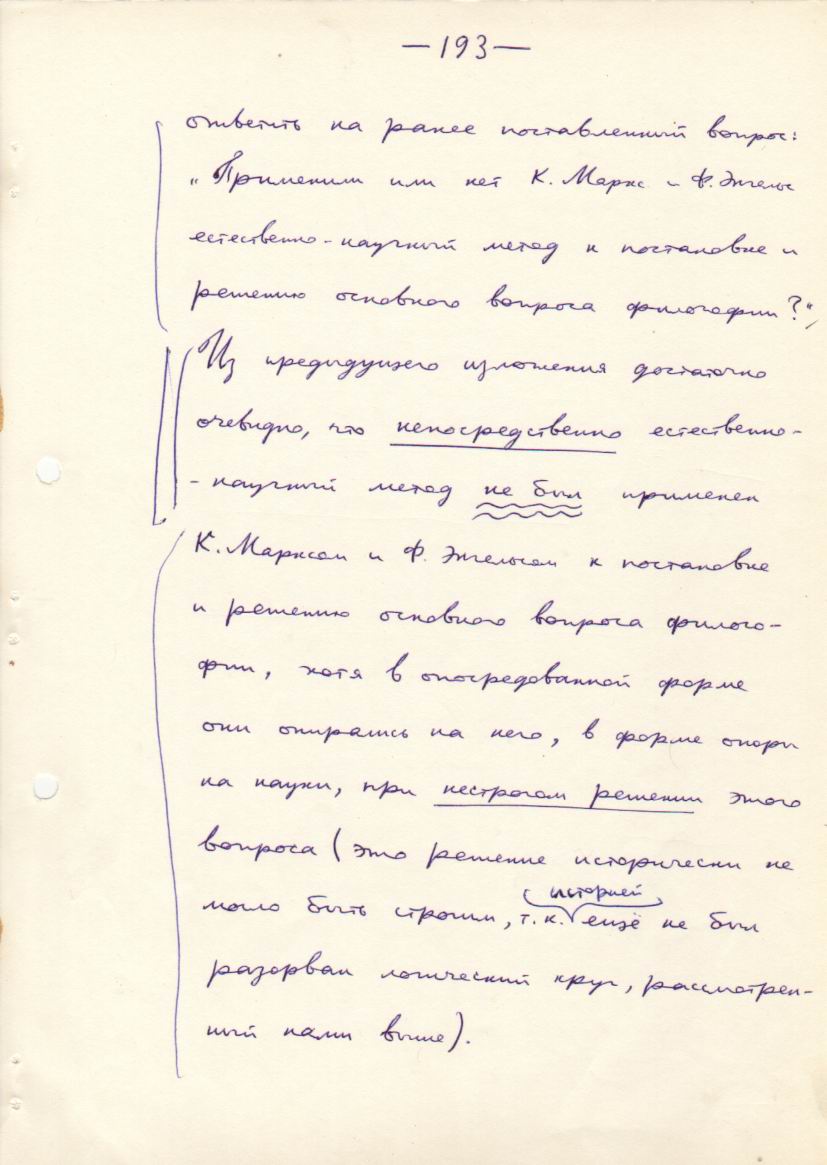 —193—
ответить на ранее поставленный вопрос:
„Применили или нет К. Маркс и Ф. Энгельс
естественно-научный метод к постановке и
решению основного вопроса философии?“,
Из предыдущего изложения достаточно
очевидно, что непосредственно естественно-
-научный метод не был применен
К. Марксом и Ф. Энгельсом к постановке
и решению основного вопроса филосо-
фии, хотя в опосредованной форме
они опирались на него, в форме опоры
на науки, при нестрогом решении этого
вопроса (это решение исторически не
историей
могло быть строгим, т.к. ещё не был
разорван логический круг, рассмотрен-
ный нами выше).